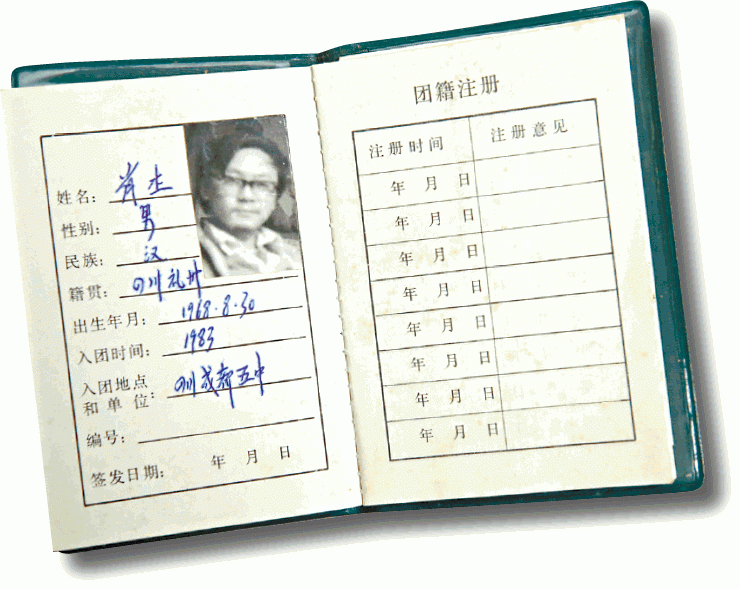 姓名：肖杰
性别：男
民族：汉
籍贯：四川礼州
出生年月：1968.8.30
入团时间：1983
入团地点
和单位：四川成都五中
编号：
签发日期： 年 月 日
团籍注册
注册时间 注册意见
年 月 日
年 月 日
年 月 日
年 月 日
年 月 日
年 月 日
年 月 日
年 月 日